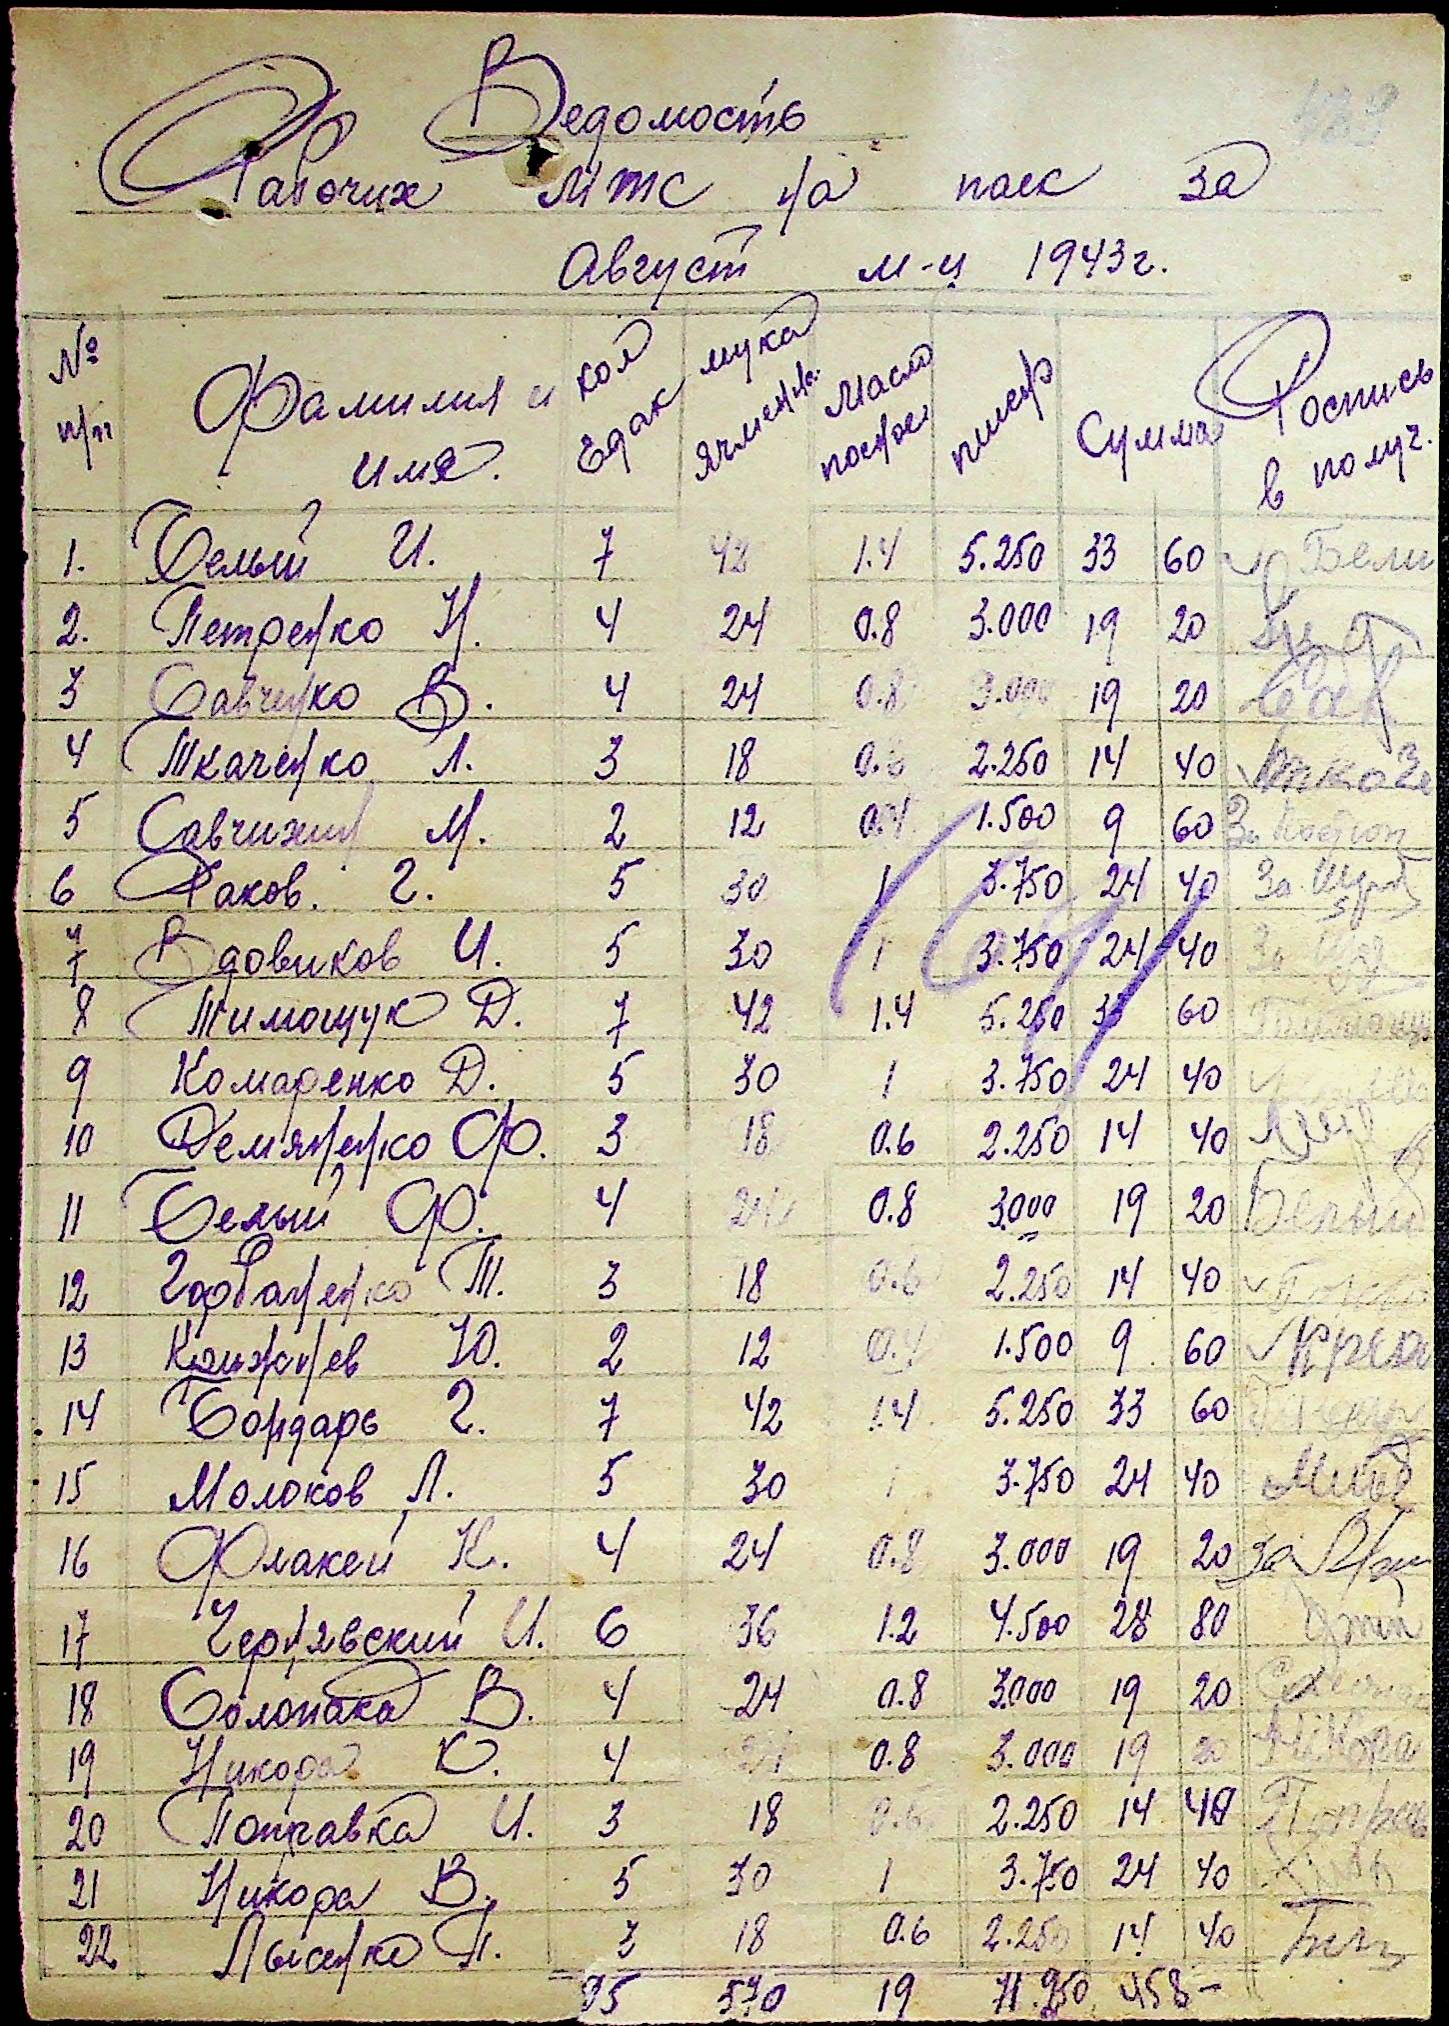 Ведомость
Рабочих МТС на паек за
Август м-ц 1943 г.
№ п/п Фамилия и имя. кол едак мука ячменн. Масло постное пшен Сумма Роспись в получ.
1. Белый И. 7 42 1.4 5.250 33 60 Белы
2. Петренко Н. 4 24 0.8 3.000 19 20
3 Савченко В. 4 24 0.8 3.000 19 20 Сав
4 Ткаченко Л. 3 18 0.6 2.250 14 40 Ткаче
5 Савчихин М. 2 12 0.4 1.500 9 60 За
6 Раков. Г. 5 30 1 3.750 24 40 За
7 Вдовиков И. 5 30 1 3.750 24 40 За
8 Тимощук Д. 7 42 1.4 5.250 33 60
9 Комаренко Д. 5 30 1 3.750 24 40
10 Демяненко Ф. 3 18 0.6 2.250 14 40
11 Белый Ф. 4 24 0.8 3.000 19 20 Белый
12 Горбаненко Т. 3 18 0.6 2.250 14 40
13 Ю. 2 12 0.4 1.500 9 60
14 Бондарь Г. 7 42 1.4 5.250 33 60
15 Молоков Л. 5 30 1 3.750 24 40
16 Флакей К. 4 24 0.8 3.000 19 20 за
17 Чернявский И. 6 36 1.2 4.500 28 80
18 Солопака В. 4 24 0.8 3.000 19 20
19 Никора К. 4 24 0.8 3.000 19 20 Никора
20 Поправка И. 3 18 0.6 2.250 14 40
21 Никора В. 5 30 1 3.750 24 40
22 Лысенко П. 3 18 0.6 2.250 14 40
95 570 19 71.250 458-